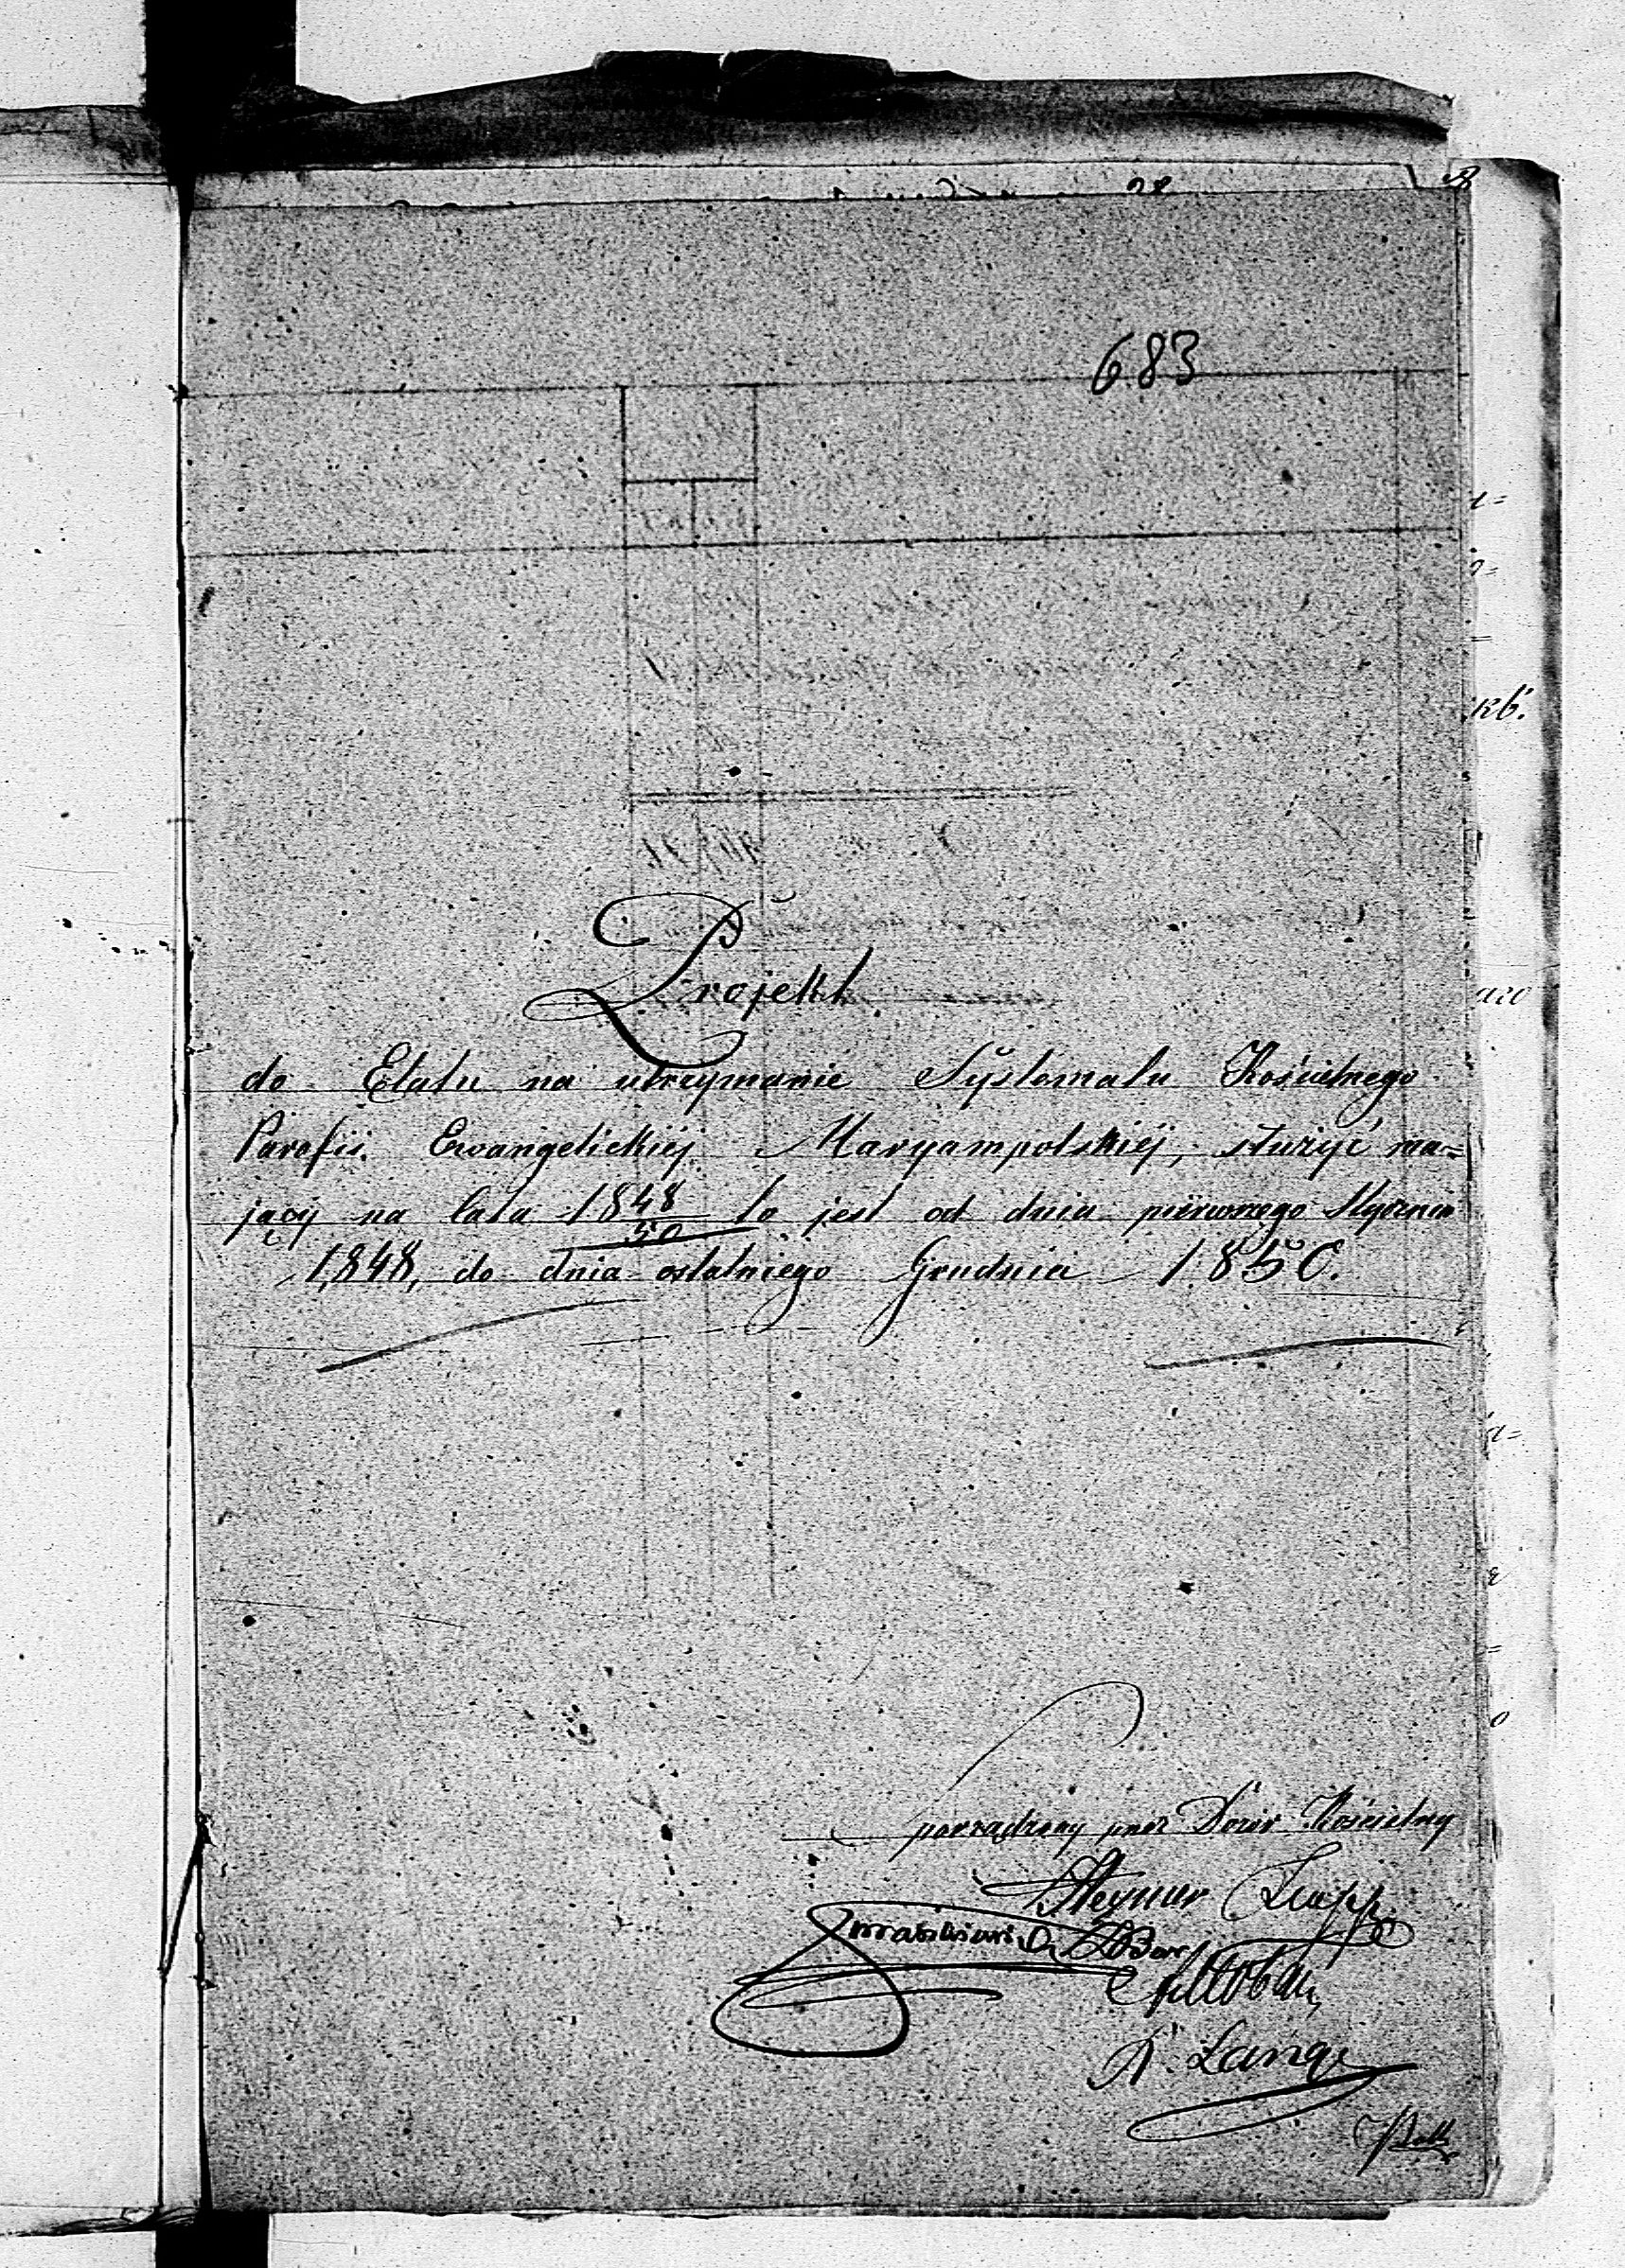 683
Projekt
do Etatu na utrzymanie Systematu Kościelnego
Parafii Ewangelickiéj Maryampolskiéj, służyć ma=
jący na lata 1848/50 to jest od dnia piérwszego Stycznia
1848, do dnia ostatniego Grudnia 1850.
porządzony przez Dozór Kościelny
D. Lange